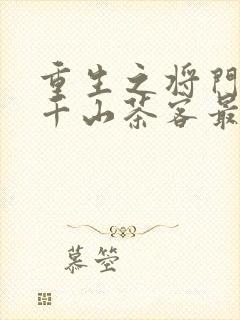 重生之将门
千山茶客最
慕箜